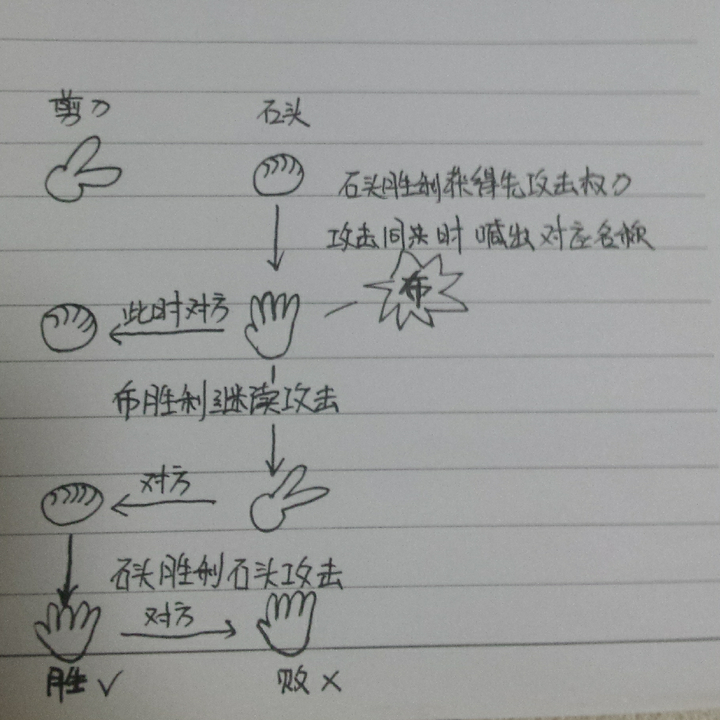 剪刀 石头
石头胜利获得先攻击权力
攻击同决时 喊出 对应名称
布
此时对方
布胜利继续攻击
对方
石头胜利石头攻击
对方
胜 √ 败 ×